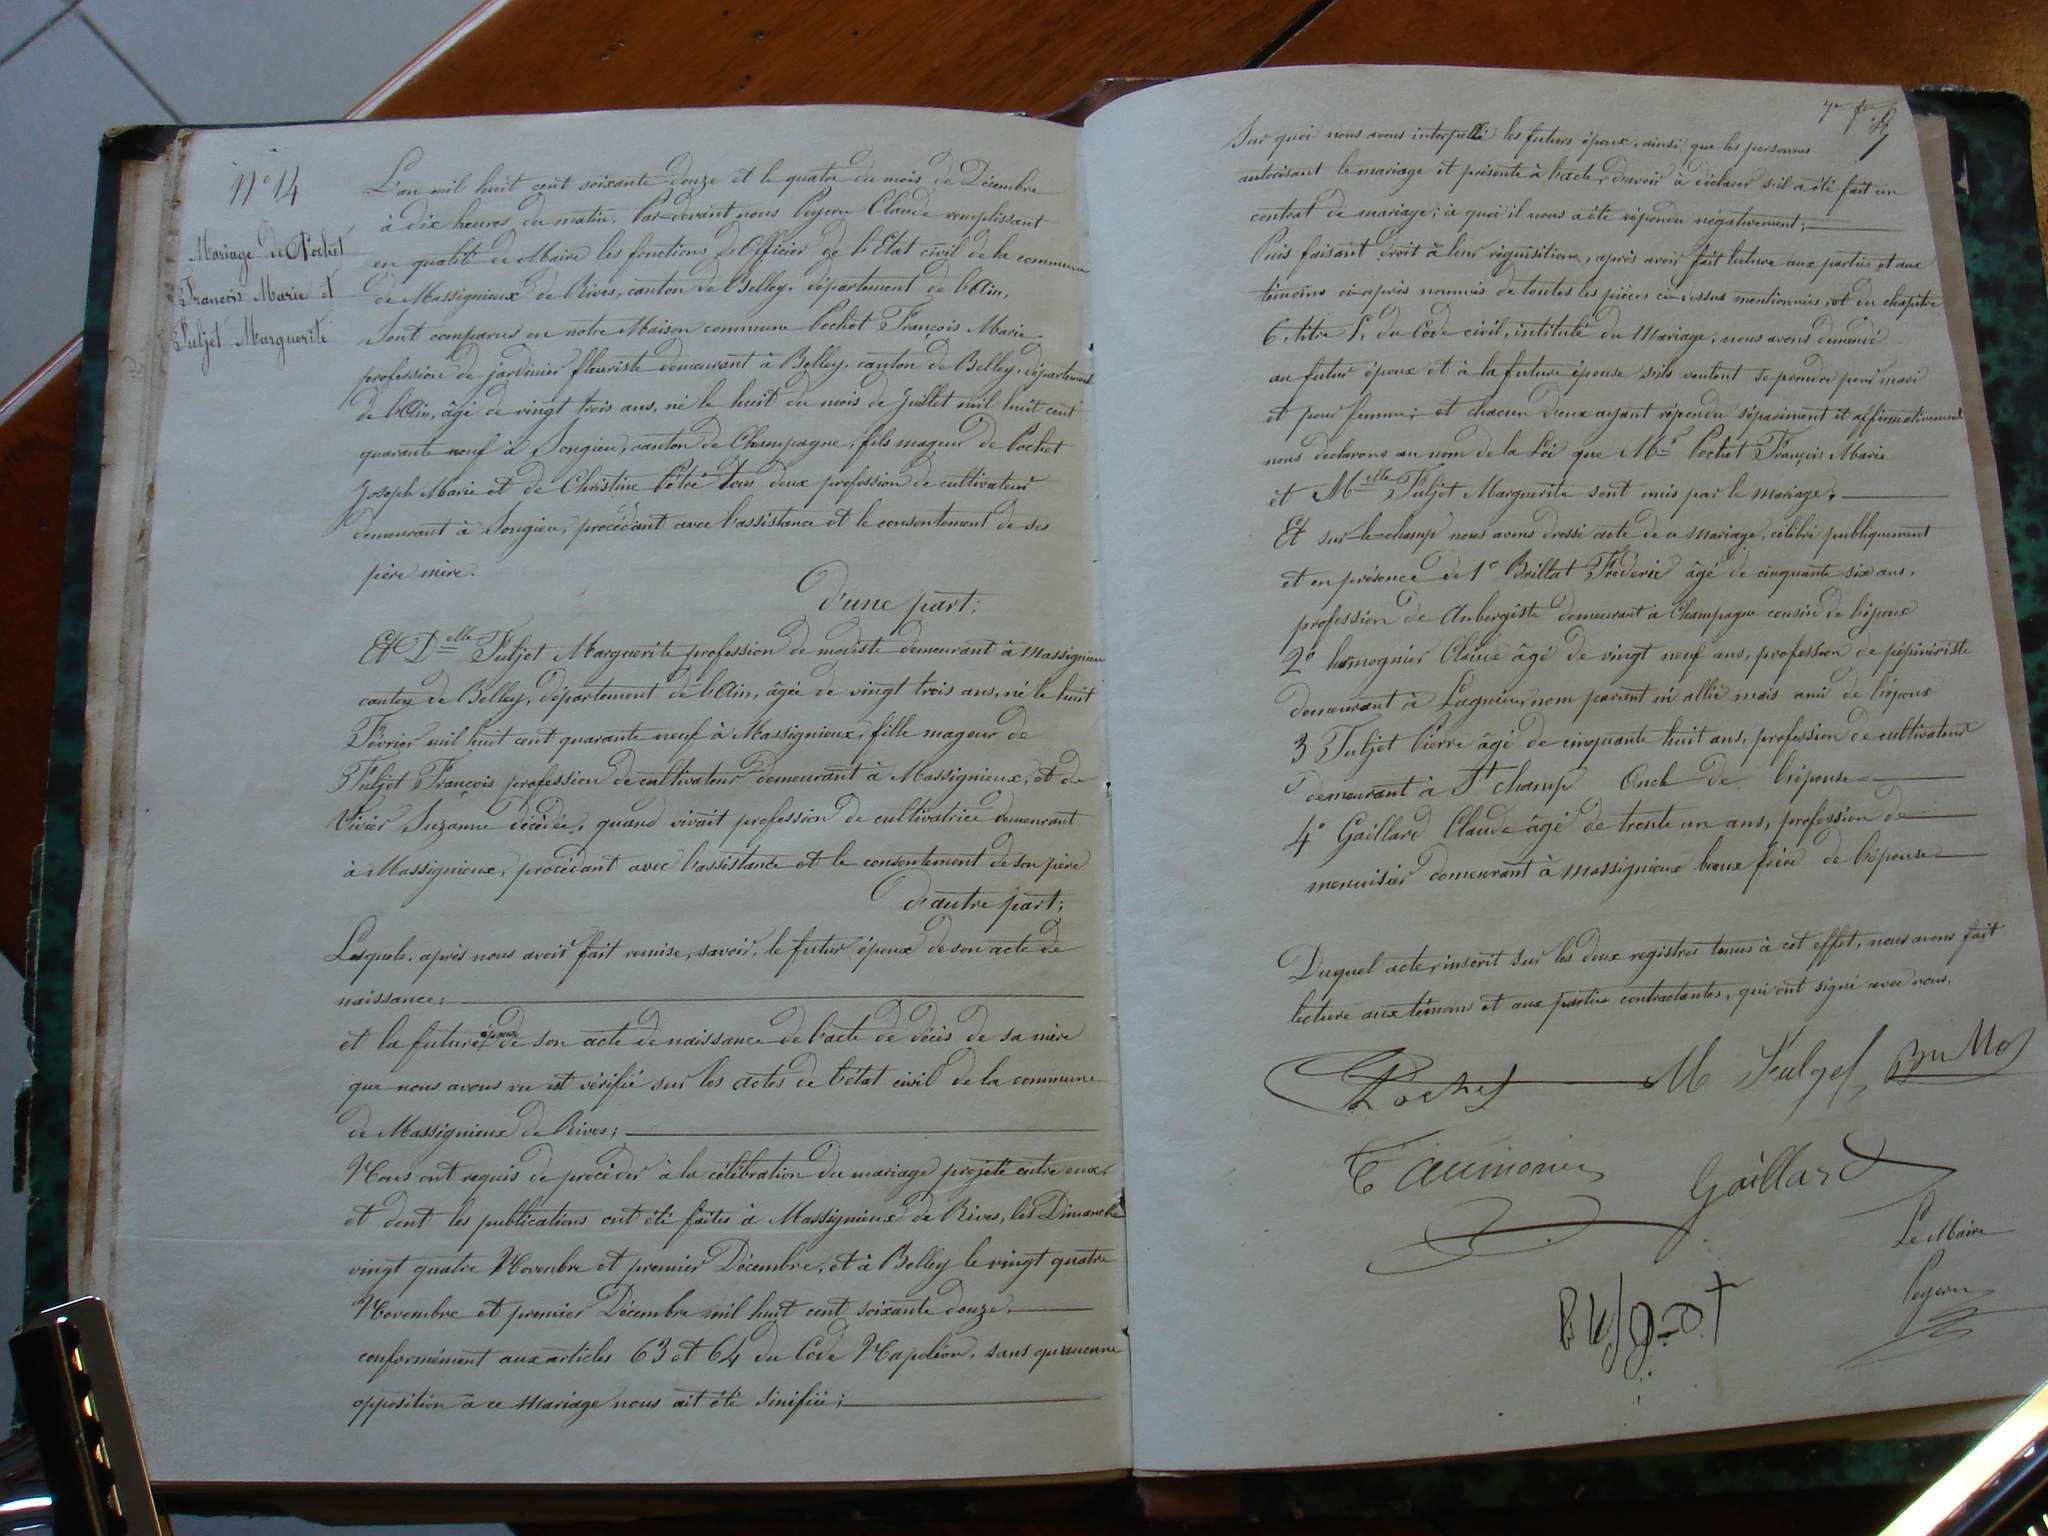 N° 14
Mariage de Pochet
François Marie et
Fuljet Marguerite
L'an mil huit cent soixante douze et le quatre du mois de Décembre
à dix heures du matin. Par-devant nous Peyeru Claude remplissant
en qualité de Maire les fonctions d'Officier de l'Etat civil de la commune
de Massignieux de Rives, canton de Belley, département de l'Ain,
Sont comparus en notre Maison commune Pochet François Marie
profession de jardinier fleuriste demeurant à Belley, canton de Belley, département
de l'Ain, âgé de vingt trois ans, né le huit du mois de Juillet mil huit cent
quarante neuf à Songieu, canton de Champagne, fils mageur de Pochet
Joseph Marie et de Christine Pétré tous deux profession de cultivateur
demeurant à Songieu, procédant avec l'assistance et le consentement de ses
père mère.
D'une part;
Et Delle Fuljet Marguerite profession de modiste demeurant à Massignieu
canton de Belley, département de l'Ain, âgée de vingt trois ans, né le huit
Février mil huit cent quarante neuf à Massignieux, fille mageur de
Fuljet François profession de cultivateur demeurant à Massignieux, et de
Vivier Suzanne décédée, quand vivait profession de cultivatrice demeurant
à Massignieux, procédant avec l'assistance et le consentement de son père
D'autre part;
Lesquels, après nous avoir fait remise, savoir, le futur époux de son acte de
naissance;
et la future épouse de son acte de naissance de l'acte de décès de sa mère
que nous avons vu est vérifié sur les actes de l'état civil de la commune
de Massignieux de Rives;
Nous ont requis de procéder à la célébration du mariage projeté entre eux,
et dont les publications ont été faites à Massignieux de Rives, les Dimanche
vingt quatre Novembre et premier Décembre, et à Belley le vingt quatre
Novembre et premier Décembre mil huit cent soixante douze.
conformément aux articles 63 et 64 du Code Napoléon, sans qu'aucune
opposition à ce mariage nous ait été sinifiée;
Sur quoi nous avons interpellé les futurs époux, ainsi que les personnes
autorisant le mariage et présente à l'acte, d'avoir à déclarer s'il a été fait un
contrat de mariage; à quoi il nous a été répondu négativement;
Puis faisant droit à leur réquisitions, après avoir fait lecture aux parties et aux
témoins ci-après nommés de toutes les pièces ci-dessus mentionnées, et du chapitre
6, titre 5, du Code civil, intitulé du Mariage, nous avons demandé
au futur époux et à la future épouse s'ils veulent se prendre pour mari
et pour femme; et chacun d'eux ayant répondu séparément et affirmativement
nous déclarons au nom de la Loi que Mr Pochet François Marie
et Melle Fuljet Marguerite sont unis par le mariage.
Et sur-le-champ nous avons dressé acte de ce mariage, célébré publiquement
et en présence de 1° Brillat Fréderic âgé de cinquante six ans,
profession de Aubergiste demeurant à Champagne cousin de l'époux
2° Claude âgé de vingt neuf ans, profession de pépiniriste
demeurant à Lagnieu, nom parent ni allié mais ami de l'époux
3 Fuljet Pierre âgé de cinquante huit ans, profession de cultivateur
demeurant à St champ Oncle de l'épouse
4° Gaillard Claude âgé de trente un ans, profession de
menuisier demeurant à Massignieux beaux frère de l'épouse
Duquel acte, inscrit sur les deux registres tenus à cet effet, nous avons fait
lecture aux témoins et aux parties contractantes, qui ont signé avec nous.
Pochet M Fulget
Gaillard
Le Maire
Peyeru